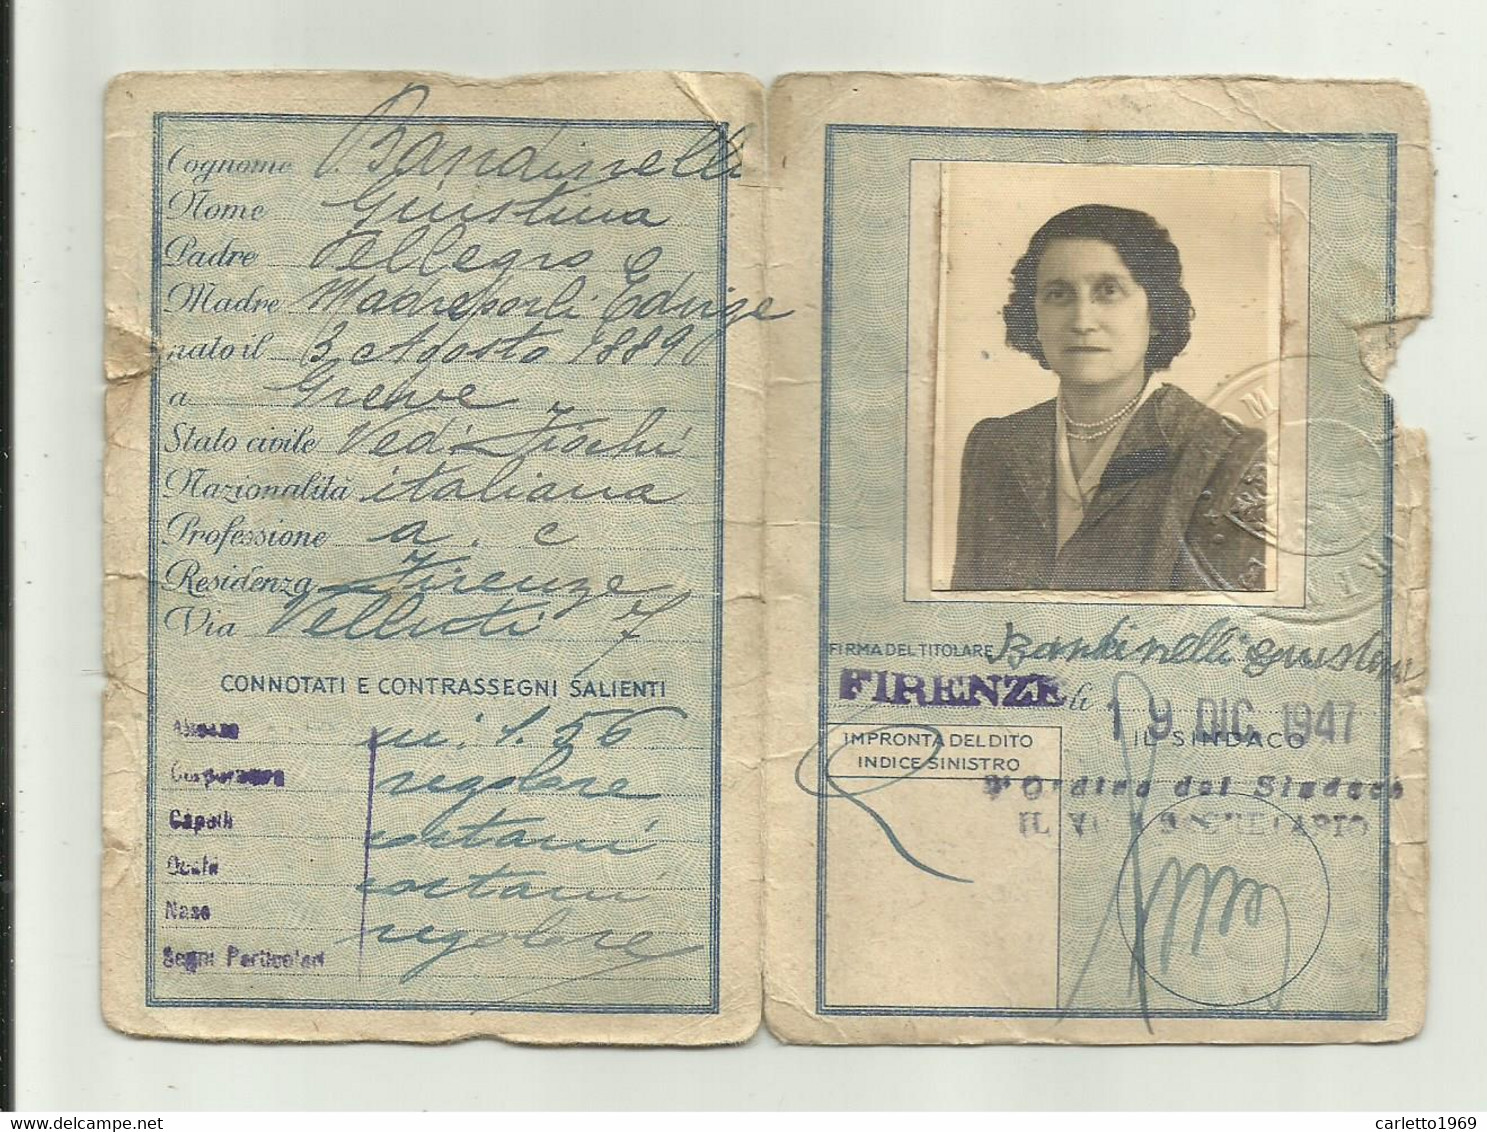 Cognome Bandinelli
Nome Giustina
Padre Pellegro e
Madre Edvige
nato il 3 Agosto 1889
a Greve
Stato civile Ved.
Nazionalità italiana
Professione a. c
Residenza Firenze
Via Velluti 7
CONNOTATI E CONTRASSEGNI SALIENTI
Statura m. 1.56
Corporatura regolare
Capelli castani
Occhi castani
Naso regolare
Segni Particolari
FIRMA DEL TITOLARE Bandinelli Giustina
FIRENZE li 19 DIC. 1947
IMPRONTA DEL DITO
INDICE SINISTRO
IL SINDACO
d'Ordine del Sindaco
IL
www.delcampe.net
carletto1969